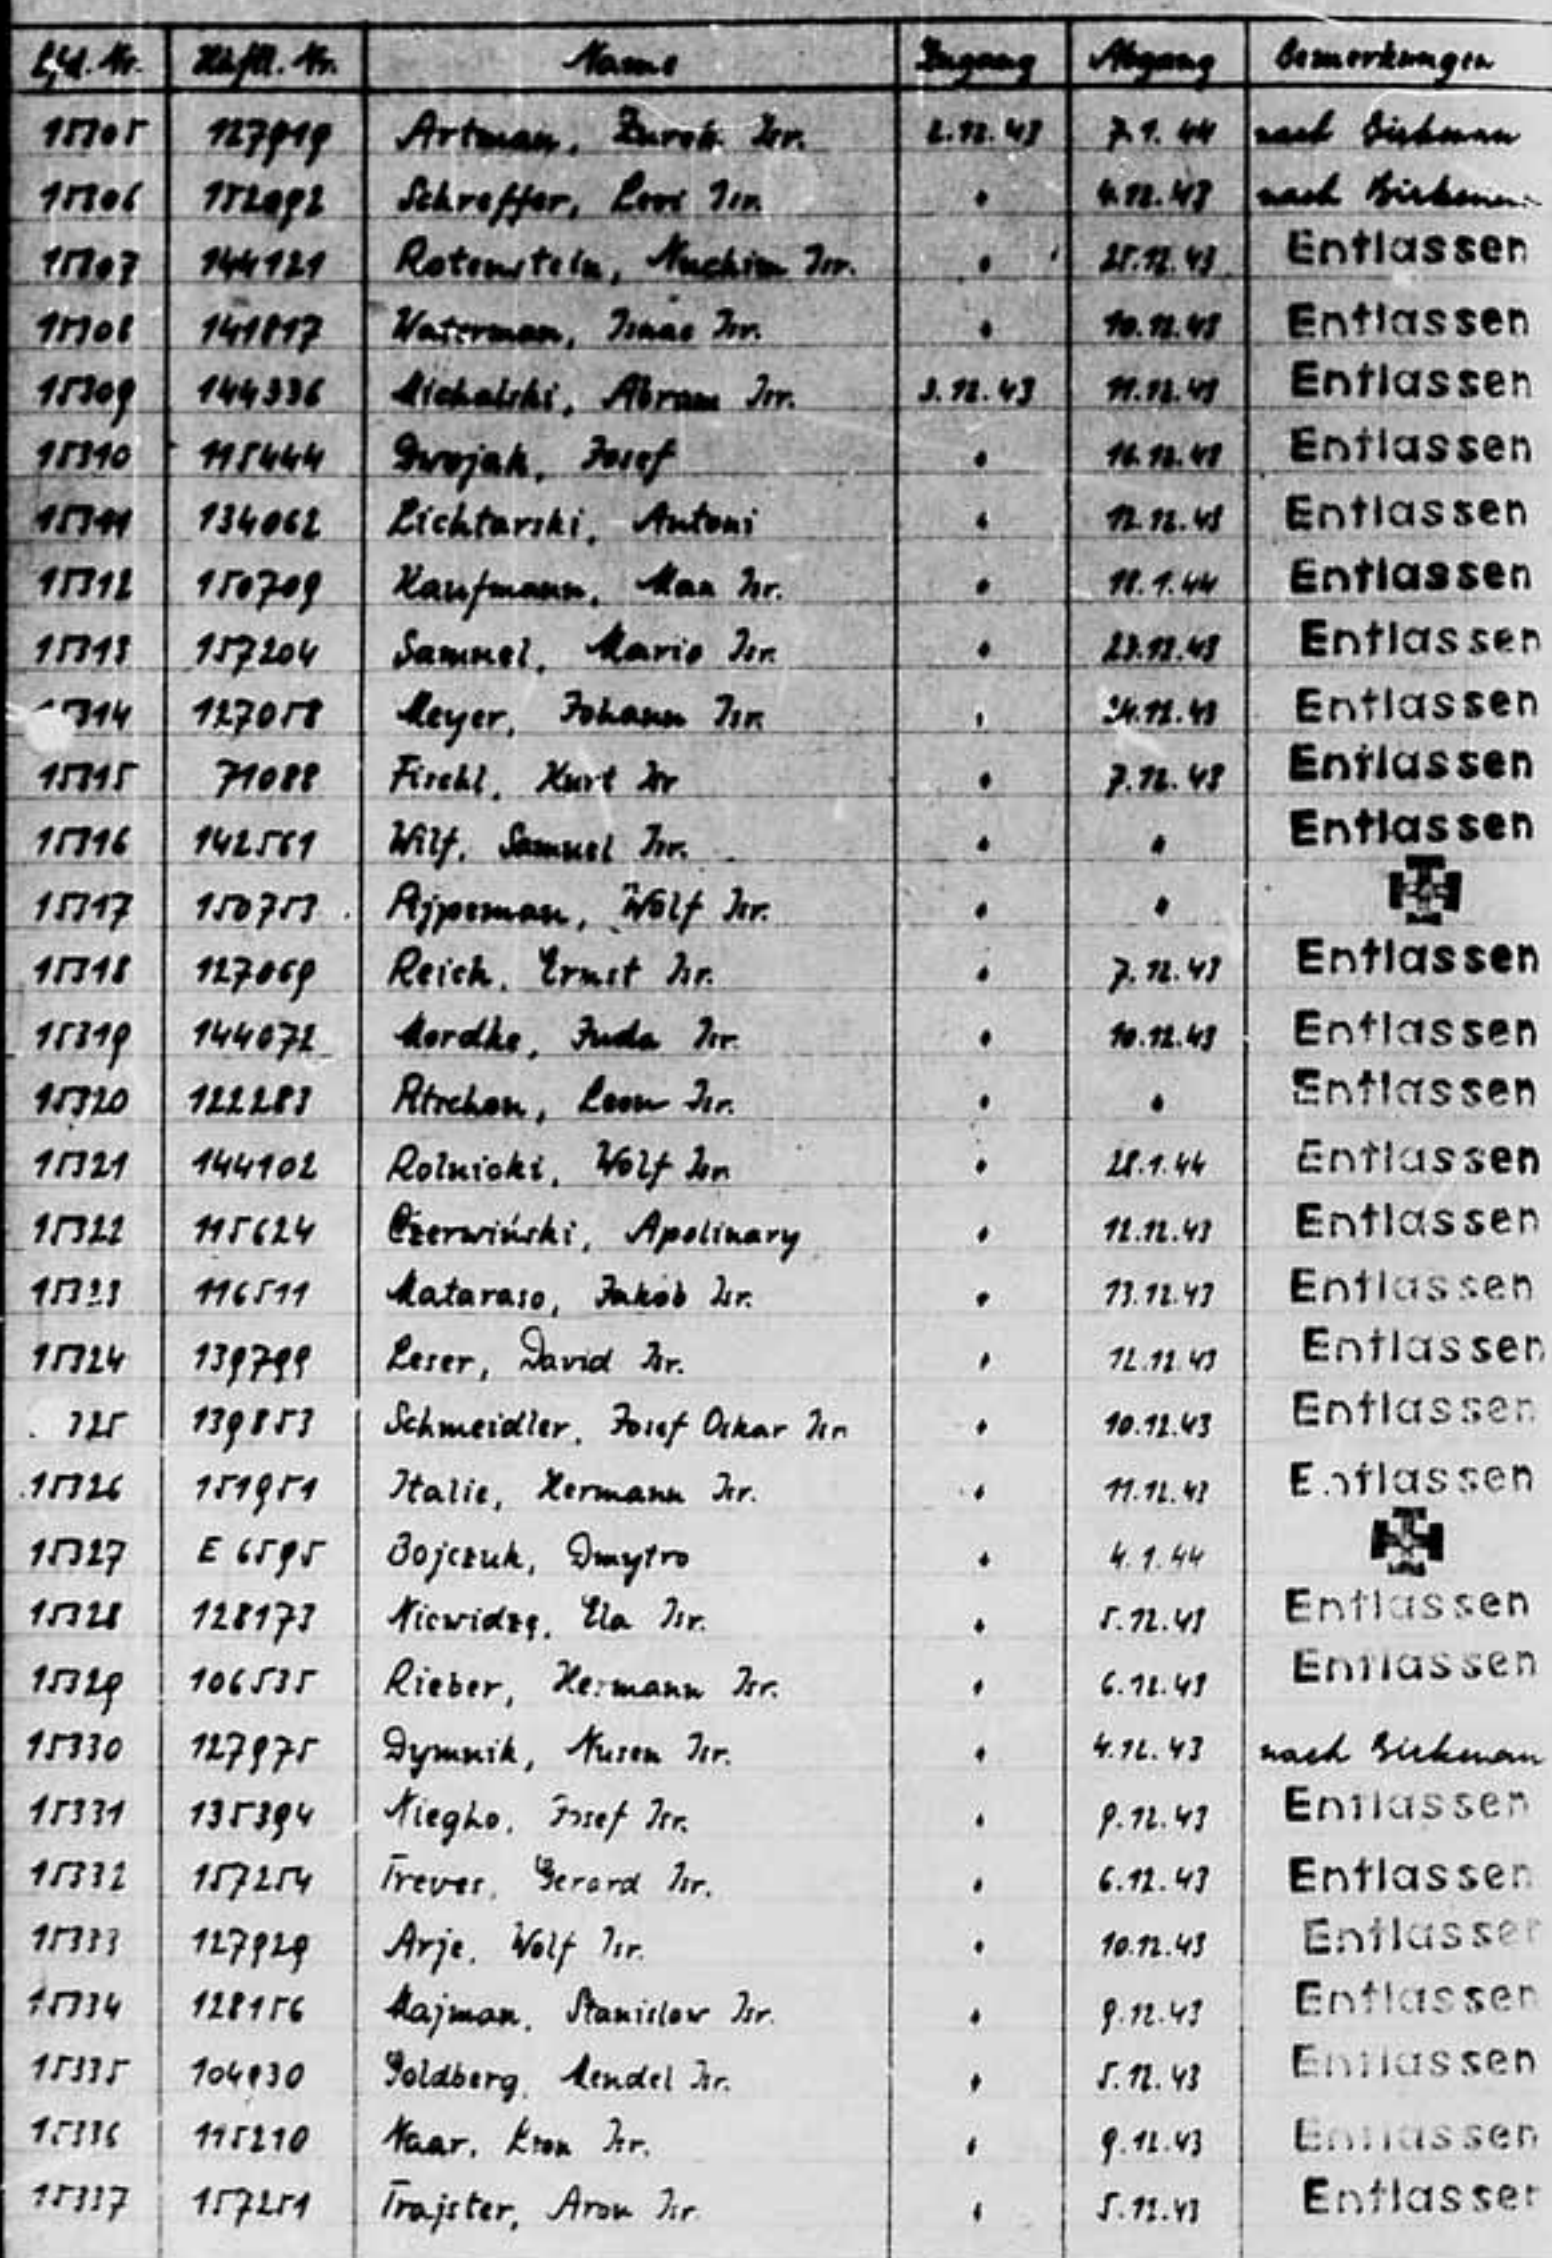 Lfd. Nr. Häftl. Nr. Name Zugang Abgang Bemerkungen
15305 127919 Artman, Isr. 2.12.43 7.1.44 nach Birkenau
15306 152092 Schreffer, Levi Isr. " 4.12.43 nach Birkenau
15307 144121 Rotenstein, Nuchim Isr. " 25.12.43 Entlassen
15308 141817 Waterman, Isaac Isr. " 10.12.43 Entlassen
15309 144336 Michalski, Abram Isr. 3.12.43 11.12.43 Entlassen
15310 115444 Dwojak, Josef " 16.12.43 Entlassen
15311 134062 Lichtarski, Antoni " 12.12.43 Entlassen
15312 150709 Kaufmann, Max Isr. " 18.1.44 Entlassen
15313 157204 Samuel, Mario Isr. " 23.12.43 Entlassen
15314 127058 Meyer, Johann Isr. " 24.12.43 Entlassen
15315 71088 Firehl, Kurt Isr " 7.12.43 Entlassen
15316 142561 Wilf, Samuel Isr. " " Entlassen
15317 150753 Wolf Isr. " "
15318 127069 Reich, Ernst Isr. " 7.12.43 Entlassen
15319 144072 Mordke, Juda Isr. " 10.12.43 Entlassen
15320 122283 Leon Isr. " " Entlassen
15321 144102 Rolnicki, Wolf Isr. " 28.1.44 Entlassen
15322 115624 Czerwiński, Apolinary " 12.12.43 Entlassen
15323 116511 Mataraso, Jakob Isr. " 13.12.43 Entlassen
15324 139799 Leser, David Isr. " 12.12.43 Entlassen
325 139853 Schmeidler, Josef Oskar Isr. " 10.12.43 Entlassen
15326 151951 Italie, Hermann Isr. " 11.12.43 Entlassen
15327 E 6595 Bojczuk, Dmytro " 4.1.44
15328 128173 Niewidzę, Ela Isr. " 5.12.43 Entlassen
15329 106535 Rieber, Hermann Isr. " 6.12.43 Entlassen
15330 127975 Dymnik, Nusen Isr. " 4.12.43 nach Birkenau
15331 135394 Niegho, Josef Isr. " 9.12.43 Entlassen
15332 157254 Treves, Gerard Isr. " 6.12.43 Entlassen
15333 127929 Arje, Wolf Isr. " 10.12.43 Entlassen
15334 128156 Majman, Stanislaw Isr. " 9.12.43 Entlassen
15335 104830 Goldberg, Mendel Isr. " 5.12.43 Entlassen
15336 115210 Naar, Isr. " 9.12.43 Entlassen
15337 157251 Trajster, Aron Isr. " 5.12.43 Entlassen